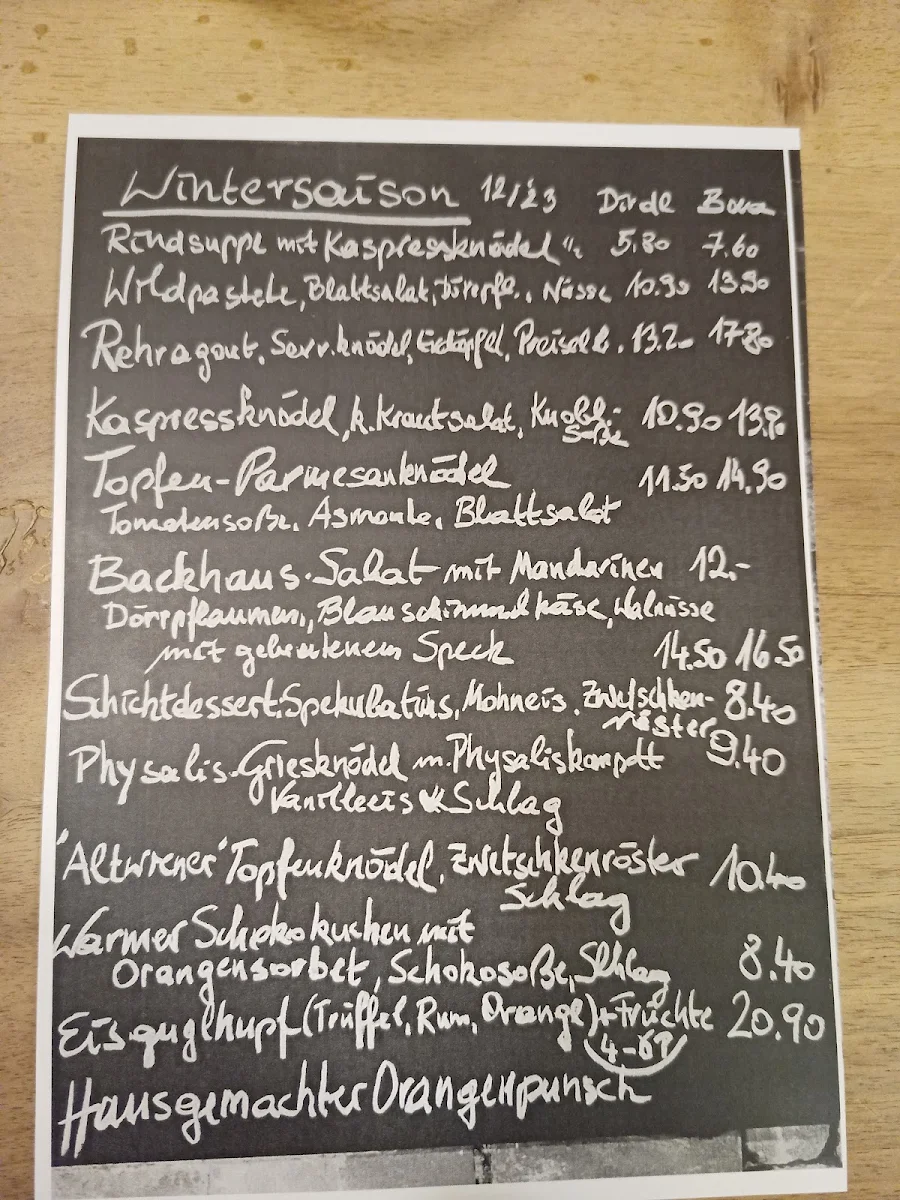 Wintersaison 12/23 Dirdl Bua
Rindsuppe mit Kaspressknödel". 5.80 7.60
Wildpastete, Blattsalat, Dörrpfl., Nüsse 10.90 13.90
Rehragout, Serv.knödel, Erdäpfel, Preiselb. 13.20 17.80
Kaspressknödel, k. Krautsalat, Knobl.- 10.90 13.90
Soße
Topfen-Parmesanknödel 11.50 14.90
Tomatensoße, Blattsalat
Backhaus-Salat mit Mandarinen 12.-
Dörrpflaumen, Blauschimmelkäse, Walnüsse
mit gebratenem Speck 14.50 16.50
Schichtdessert: Spekulatius, Mohneis, Zwetschken- 8.40
röster
Physalis-Griesknödel m. Physaliskompott 9.40
Vanilleeis Schlag
"Altwiener" Topfenknödel, Zwetschkenröster 10.40
Schlag
Warmer Schokokuchen mit
Orangensorbet, Schokosoße, Schlag 8.40
Eisguglhupf (Trüffel, Rum, Orange) + Früchte 20.90
Hausgemachter Orangenpunsch